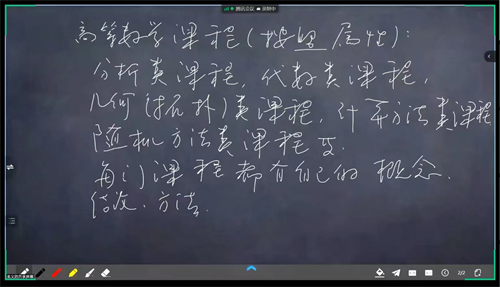 腾讯会议 录制中
高等数学课程(按照属性):
分析类课程, 代数类课程,
几何(拓扑)类课程, 计算方法类课程
随机方法类课程
每门课程都有自己的概念.
方法.
2/2